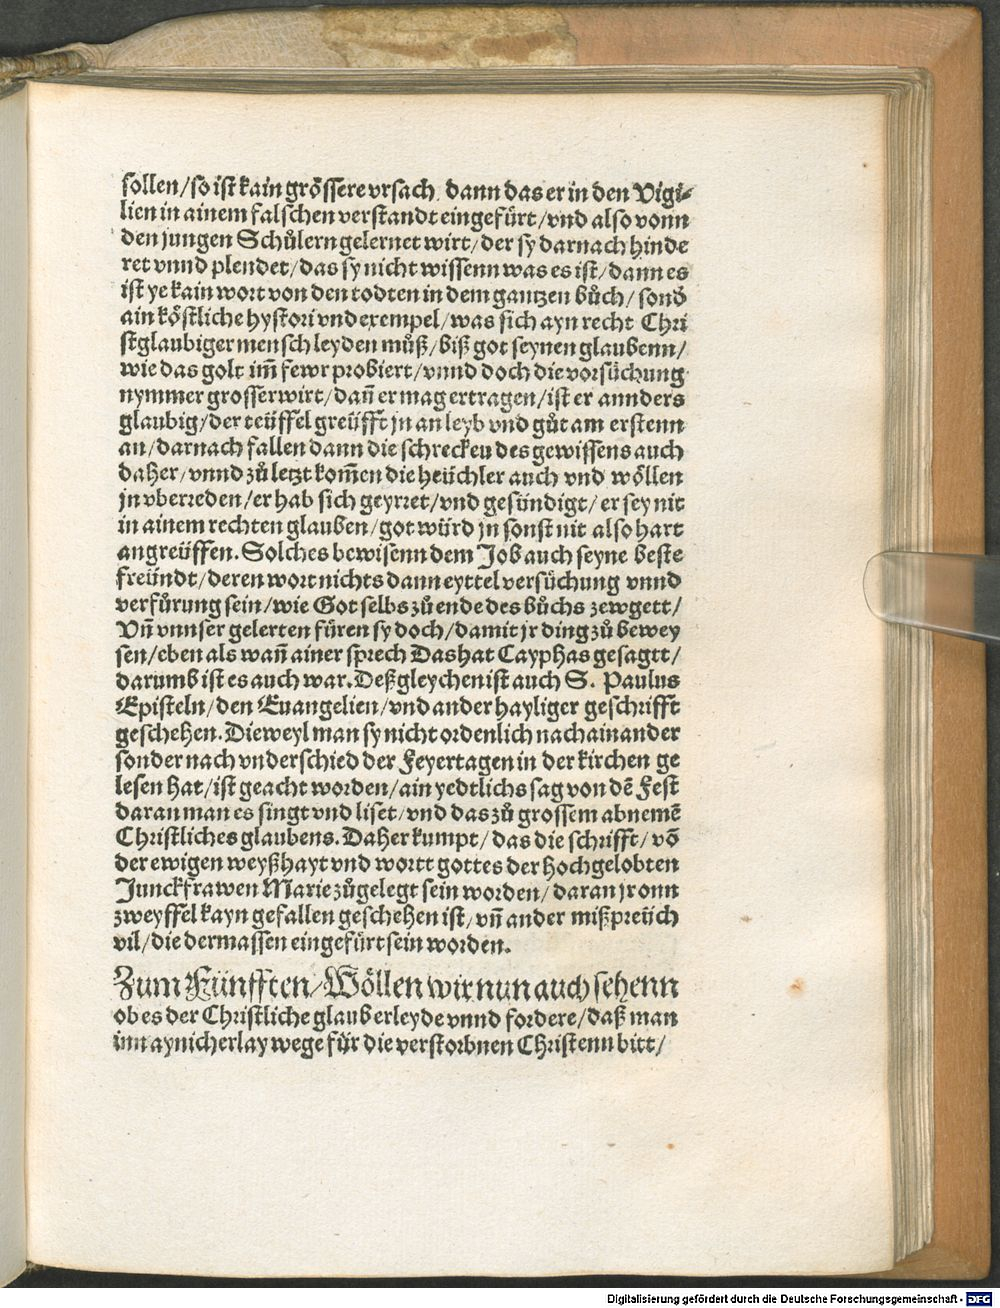 sollen/so ist kain grössere vrsach dann das er in den Vigi-
lien in ainem falschen verstandt eingefürt/vnd also vonn
den jungen Schůlern gelernet wirt/der sy darnach hinde
ret vnnd plendet/das sy nicht wissenn was es ist/dann es
ist ye kain wort von den todten in dem gantzen bůch/sond̕
ain köstliche hystori vnd exempel/was sich ayn recht Chri
stglaubiger mensch leyden můß/biß got seynen glaubenn/
wie das golt im̃ fewr probiert/vnnd doch die vorsüchung
nymmer grosser wirt/dañ er mag ertragen/ist er annders
glaubig/der teüffel greüfft jn an leyb vnd gůt am erstenn
an/darnach fallen dann die schrecken des gewissens auch
daher/vnnd zů letzt kom̃en die heüchler auch vnd wöllen
jn vberreden/er hab sich geyrret/vnd gesündigt/er sey nit
in ainem rechten glauben/got würd jn sonst nit also hart
angreüffen. Solches bewisenn dem Job auch seyne beste
freündt/deren wort nichts dann eyttel versüchung vnnd
verfůrung sein/wie Got selbs zů ende des bůchs zewgett/
Vñ vnnser gelerten füren sy doch/damit jr ding zů bewey
sen/eben als wañ ainer sprech Das hat Cayphas gesagtt/
darumb ist es auch war. Deßgleychen ist auch S. Paulus
Episteln/den Euangelien/vnd ander hayliger geschrifft
geschehen. Dieweyl man sy nicht ordenlich nach ainander
sonder nach vnderschied der Feyertagen in der kirchen ge
lesen hat/ist geacht worden/ain yedtlichs sag von dẽ Fest
daran man es singt vnd liset/vnd das zů grossem abnemẽ
Christliches glaubens. Daher kumpt/das die schrifft/võ
der ewigen weyßhayt vnd wortt gottes der hochgelobten
Junckfrawen Marie zůgelegt sein worden/daran jr onn
zweyffel kayn gefallen geschehen ist/vñ ander mißpreüch
vil/die dermassen eingefürt sein worden.
Zum Fünfften/Wöllen wir nun auch sehenn
ob es der Christliche glaub erleyde vnnd fordere/daß man
inn aynicherlay wege für die verstorbnen Christenn bitt/
Digitalisierung gefördert durch die Deutsche Forschungsgemeinschaft - DFG